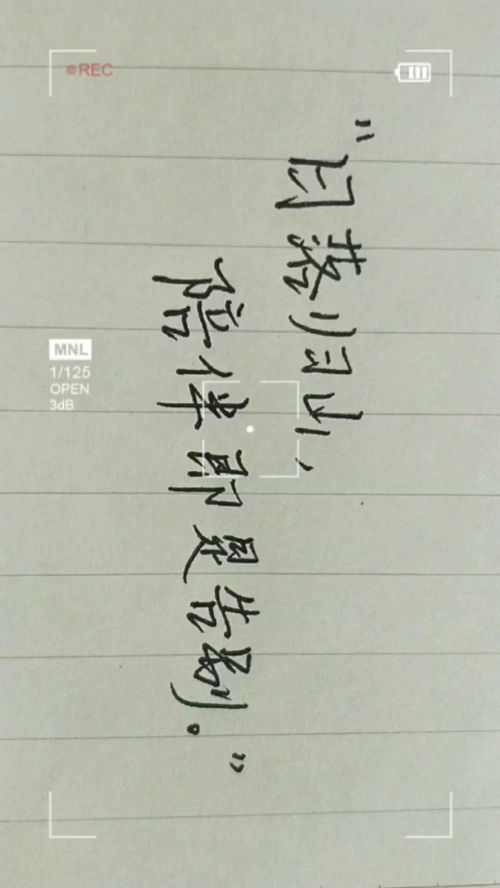 REC
"日落归山,
陪伴即是告别。"
MNL
1/125
OPEN
3dB